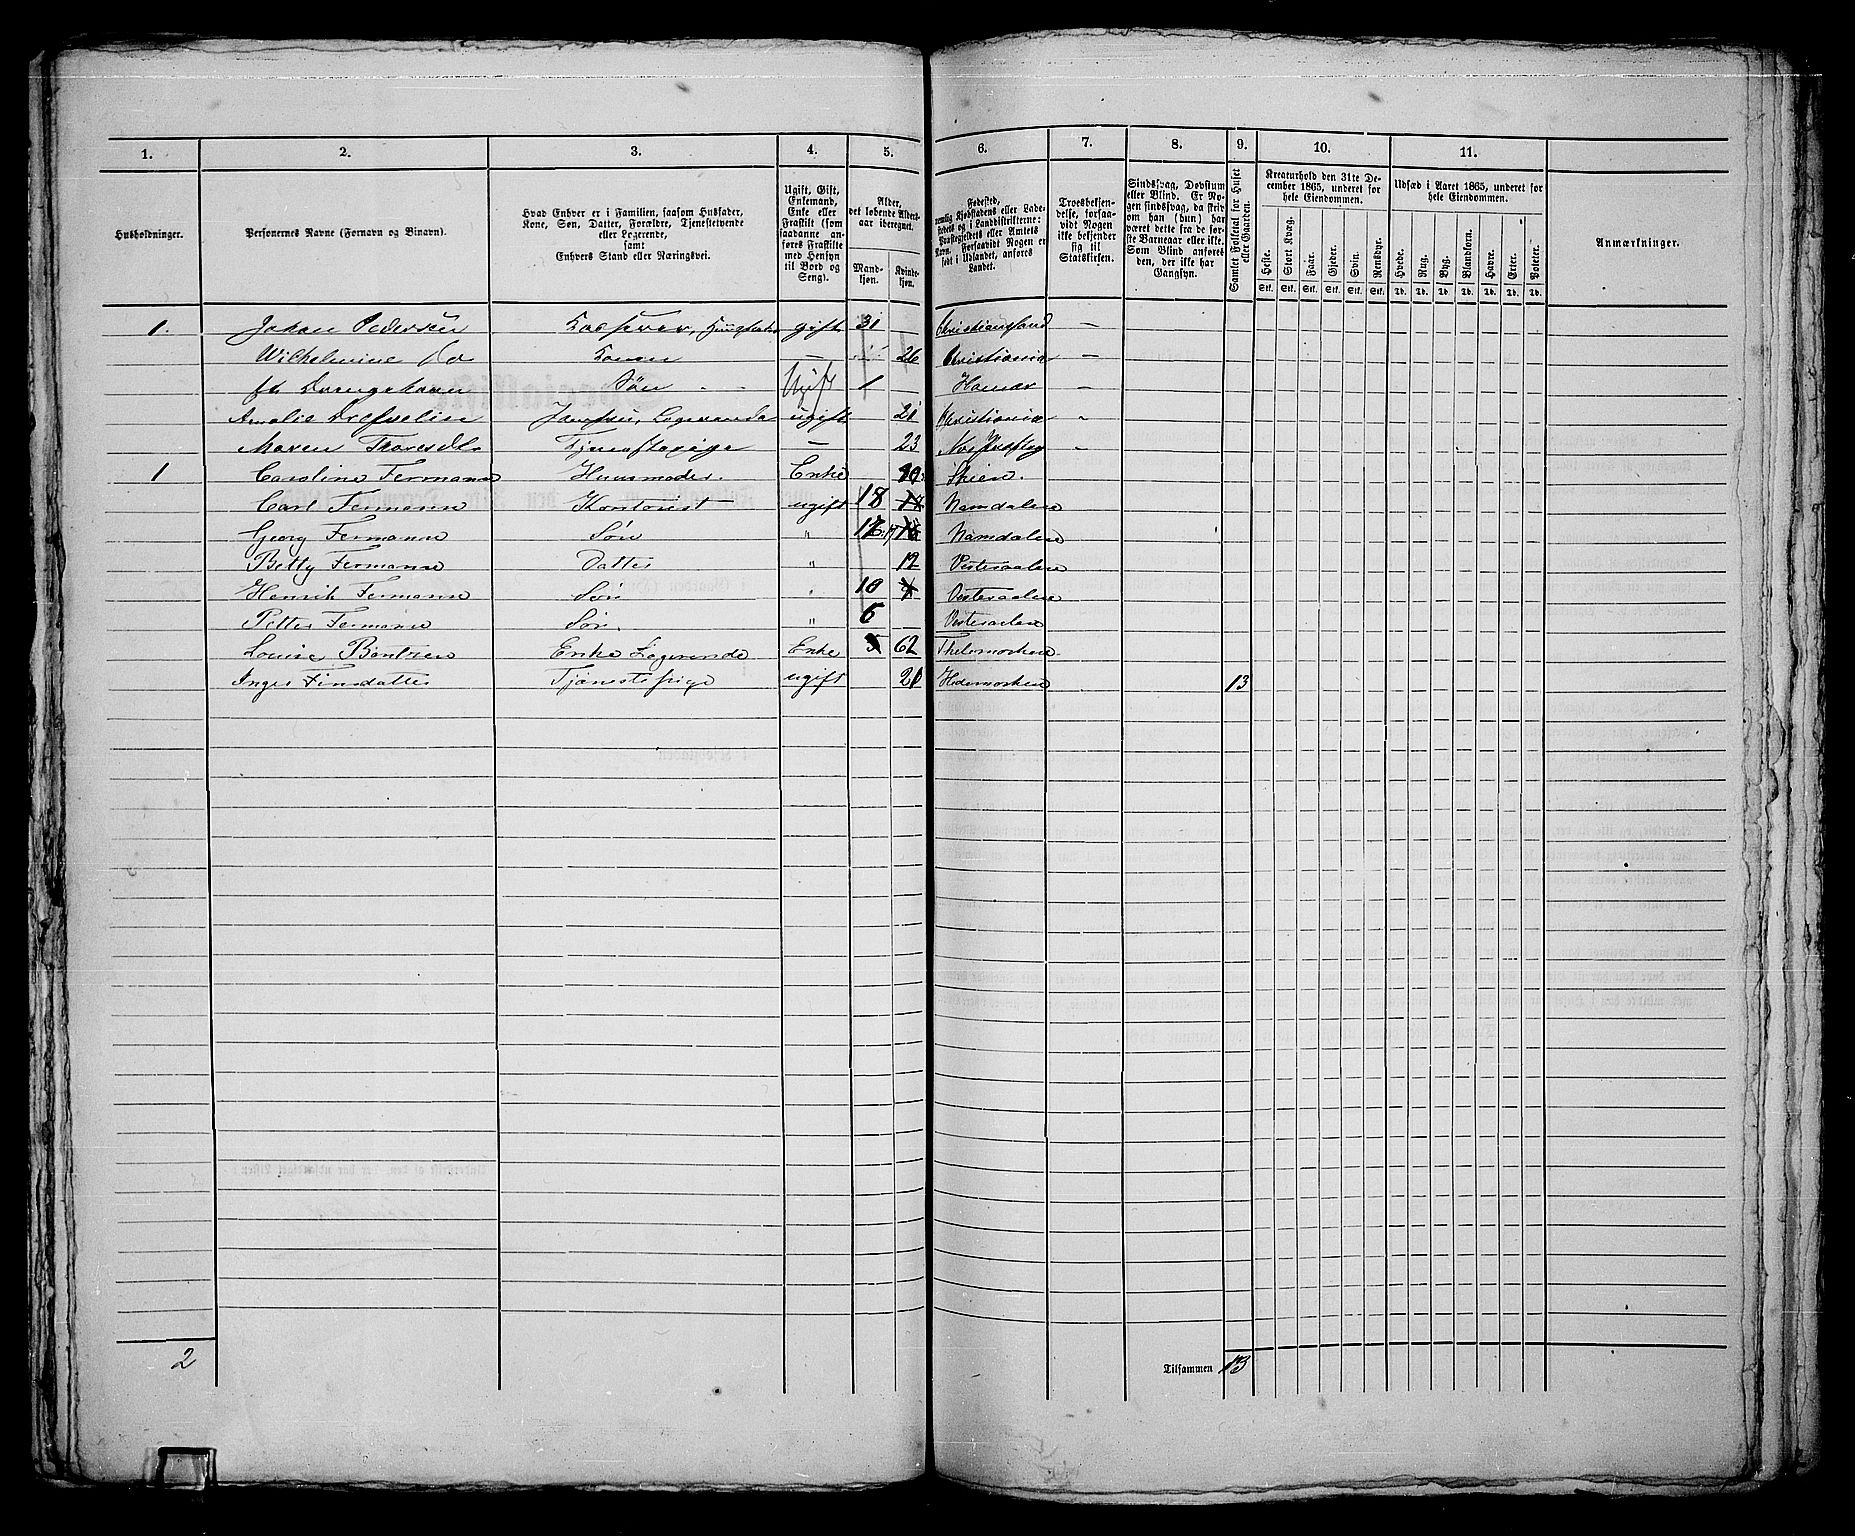 1. 2. 3. 4. 5. 6. 7. 8. 9. 10. 11.
Husholdninger.
Personernes Navne (Fornavn og Binavn).
Hvad Enhver er i Familien, saasom Husfader, Kone, Søn, Datter, Forældre, Tjenestetyende eller Logerende, samt Enhvers Stand eller Næringsvei.
Ugift, Gift, Enkemand, Enke eller Fraskilt (som saadanne anføres Fraskilte med Hensyn til Bord og Seng).
Alder, det løbende Aldersaar iberegnet.
Mandkjøn.
Kvindekjøn.
Fødested, nemlig Kjøbstadens eller Ladestedets og i Landdistrikterne: Præstegjeldets eller Amtets Navn. Forsaavidt Nogen er født i Udlandet, anføres Landet.
Troesbekjendelse, forsaavidt Nogen ikke bekjender sig til Statskirken.
Sindssvag, Døvstum eller Blind. Er Nogen sindssvag, da skriv om han (hun) har været dette fra de første Barneaar eller ikke. Som Blind anføres den, der ikke har Gangsyn.
Samlet Folketal for Huset eller Gaarden.
Kreaturhold den 31te December 1865, underet for hele Eiendommen.
Heste. Stort Kvæg. Faar. Gjeder. Svin. Rensdyr.
Stk. Stk. Stk. Stk. Stk. Stk.
Udsæd i Aaret 1865, underet for hele Eiendommen.
Hvede. Rug. Byg. Blandkorn. Havre. Erter. Poteter.
Td. Td. Td. Td. Td. Td. Td.
Anmærkninger.
1. Johan Pedersen Kasserer, gift 31 Christianssand —
Wilhelmine Do Konen — 26 Christiania —
Søn Ugift 1 Hamar —
Amalie Jomfru, Logerende ugift 21 Christiania -
Maren Tjenestepige — 23 -
1 Caroline Fermann Huusmoder. Enke Skien.
Carl Fermann Kontorist — ugift 18 Namdalen
Georg Fermann Søn " Namdalen
Betty Fermann Datter " 12 Vesteraalen
Henrik Fermann Søn " 10 Vesteraalen
Petter Fermann Søn. " 6 Vesteraalen
Louise Bentzen Enke Logerende Enke 62 Thelemarken.
Inger Finsdatter Tjänestepige ugift 21 Hedemarken 13
2 Tilsammen 13